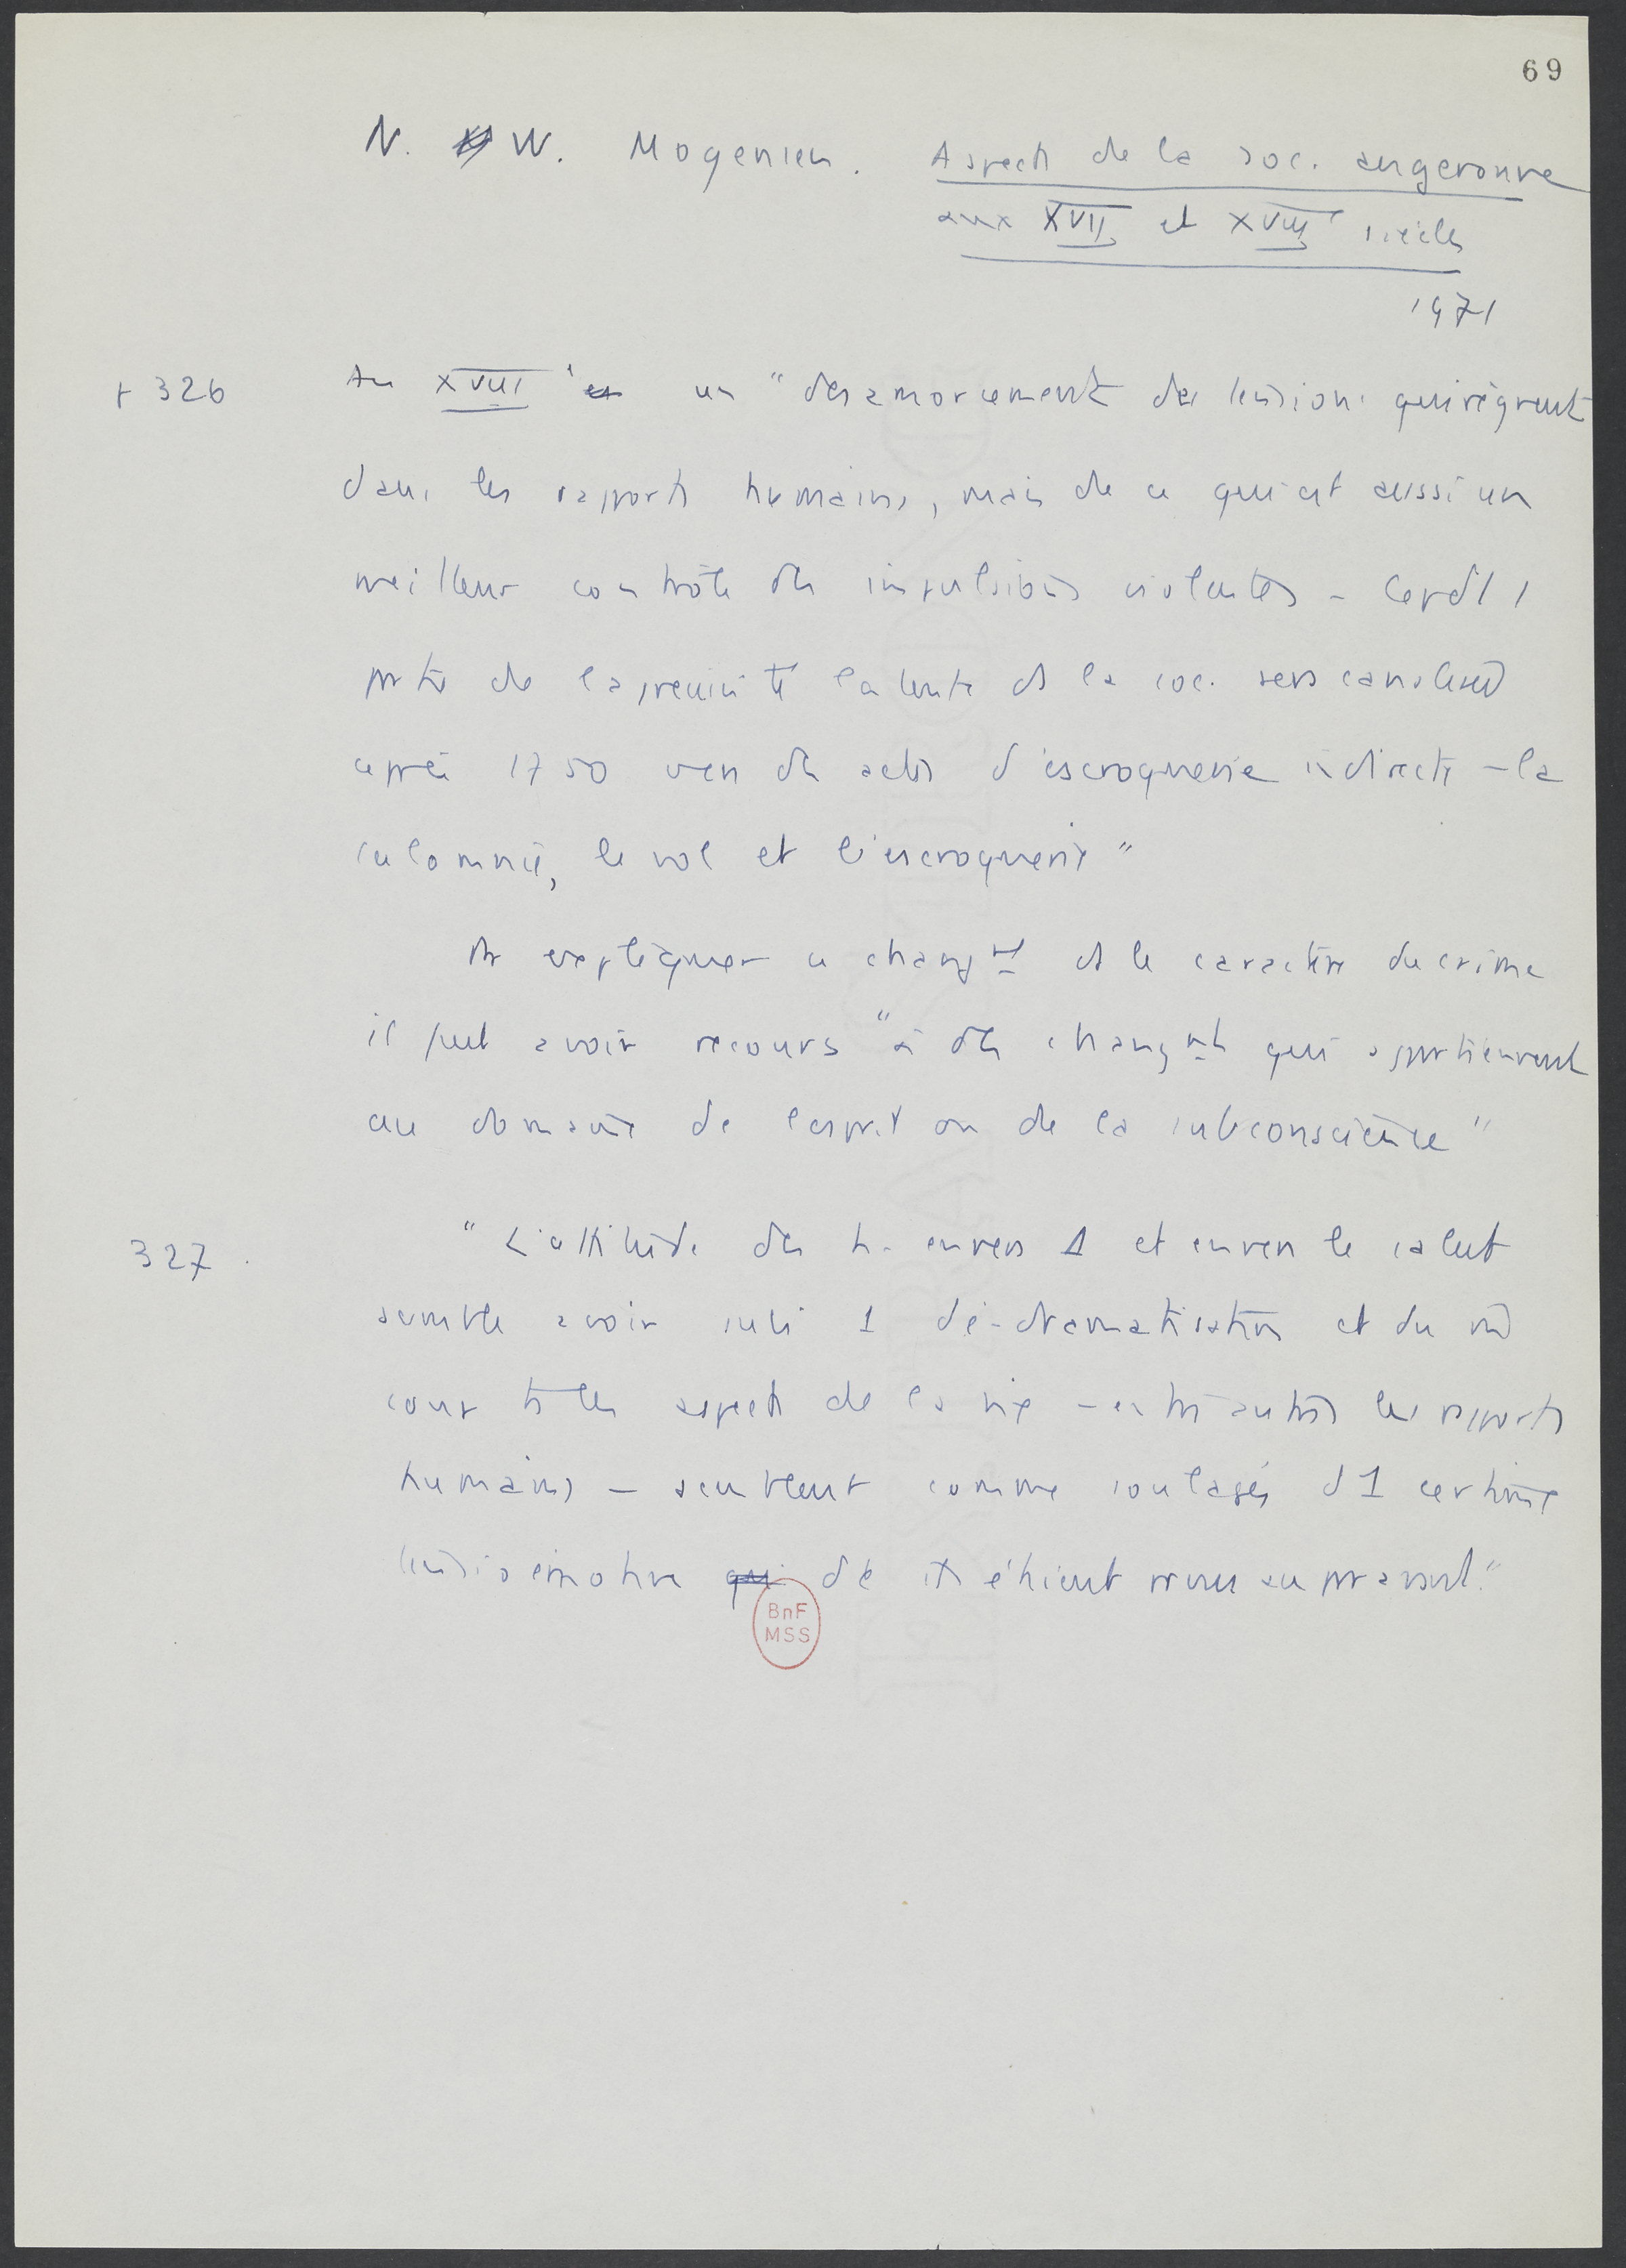 69
N. W. Mogensen. Aspects de la soc. augeronne
aux XVII et XVIII siècles
1971
+ 326 Au XVIII un "desamorcement des tensions qui règnent
dans les rapports humains, mais de ce qui est aussi un
meilleur contrôle des impulsions violentes - Cepdt 1
ptie de l'agressivité latente ds la soc. sera canalisée
après 1750 vers des actes d'escroquerie indirecte - la
calomnie, le vol et l'escroquerie"
Pr expliquer ce changt ds le caractère du crime
il faut avoir recours "à des changts qui appartiennent
au domaine de l'esprit ou de la subconscience"
327. "L'attitude des h. envers 1 et envers le salut
semble avoir subi 1 dé-dramatisation et du
coup ts les aspects de la vie - entre autres les rapports
humains - semblent comme soulagés d'1 certaine
tension émotive dt ils étaient
BnF
MSS